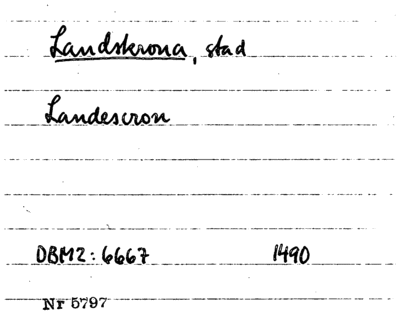 Landskrona, stad
Landescron
DBM2:6667 1490
Nr 5797